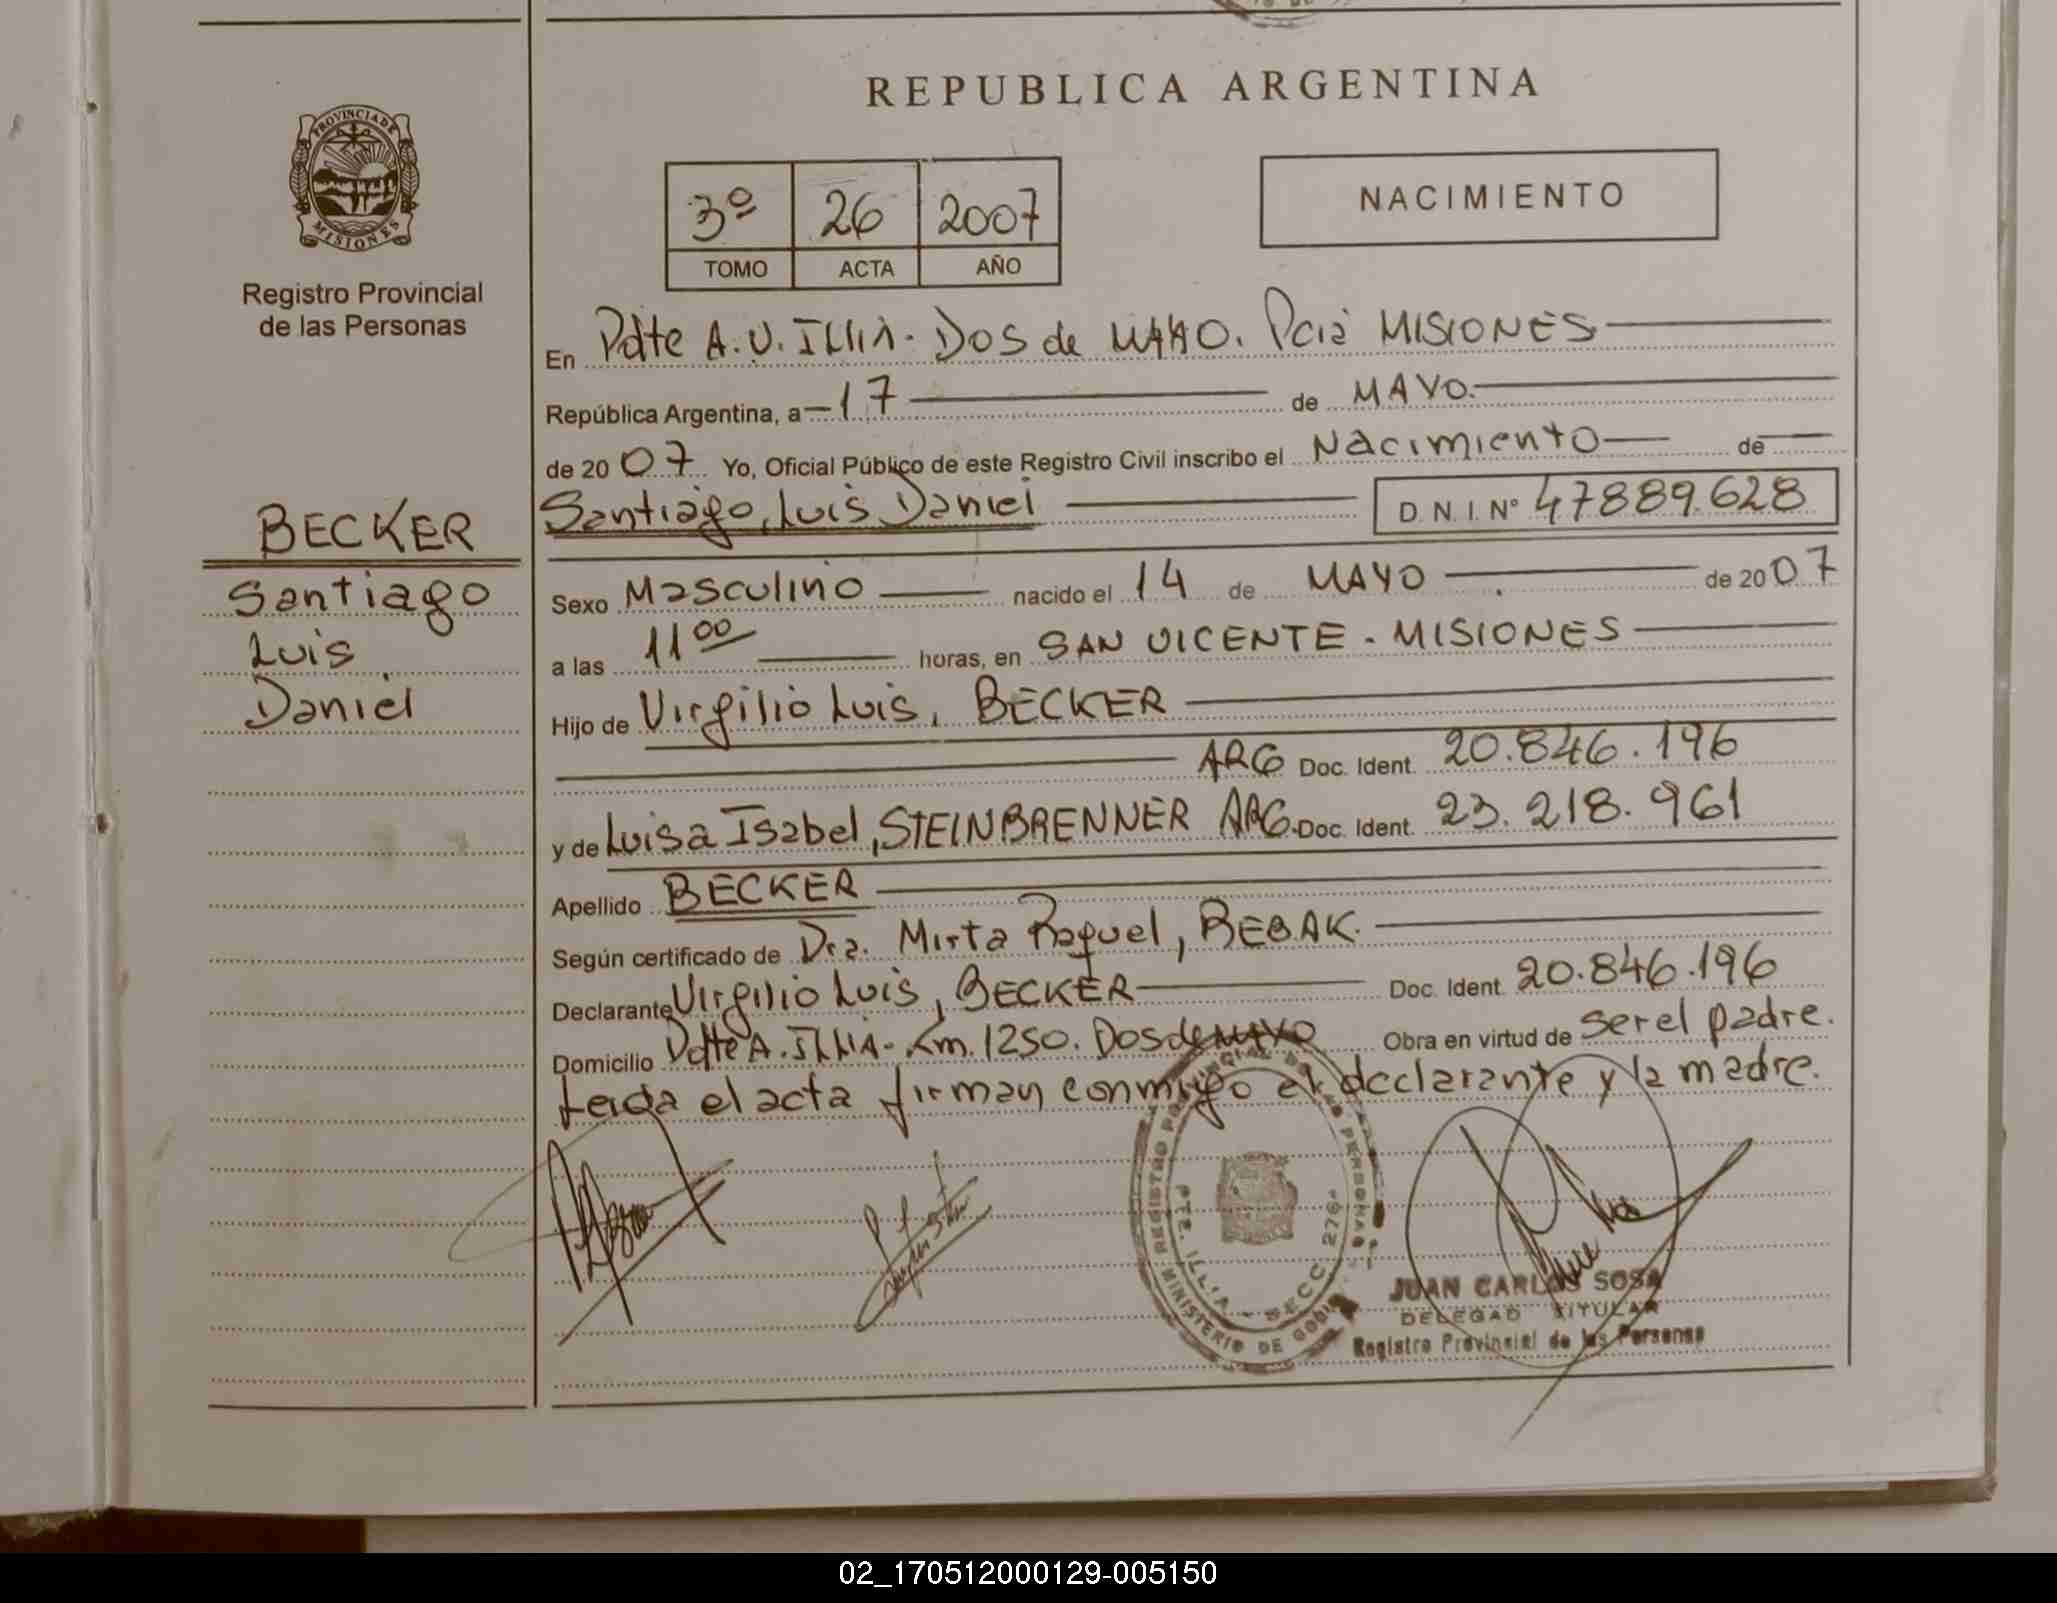 REPUBLICA ARGENTINA
PROVINCIA DE
MISIONES
Registro Provincial
de las Personas
3º 26 2007
TOMO ACTA AÑO
NACIMIENTO
En Pdte A.U. ILLIA. Dos de MAYO. Pcia MISIONES
República Argentina, a 17 de MAYO.
de 2007 Yo, Oficial Público de este Registro Civil inscribo el Nacimiento de
Santiago, Luis Daniel D.N.I. Nº 47889.628
BECKER
Santiago
Luis
Daniel
Sexo Masculino nacido el 14 de MAYO de 2007
a las 11 00 horas, en SAN VICENTE - MISIONES
Hijo de Virgilio Luis, BECKER
ARG Doc. Ident. 20.846.196
y de Luisa Isabel, STEINBRENNER ARG. Doc. Ident. 23.218.961
Apellido BECKER
Según certificado de Dra. Mirta Raquel, BEBAK.
Declarante Virgilio Luis, BECKER Doc. Ident. 20.846.196
Domicilio Pdte A. ILLIA - Km. 1250. Dos de MAYO Obra en virtud de ser el padre.
Leida el acta firman conmigo el declarante y la madre.
REGISTRO PROVINCIAL DE LAS PERSONAS
PTE. ILLIA - SECC. 276ª
MINISTERIO DE GOB
JUAN CARLOS SOSA
DELEGADO TITULAR
Registro Provincial de las Personas
02_170512000129-005150